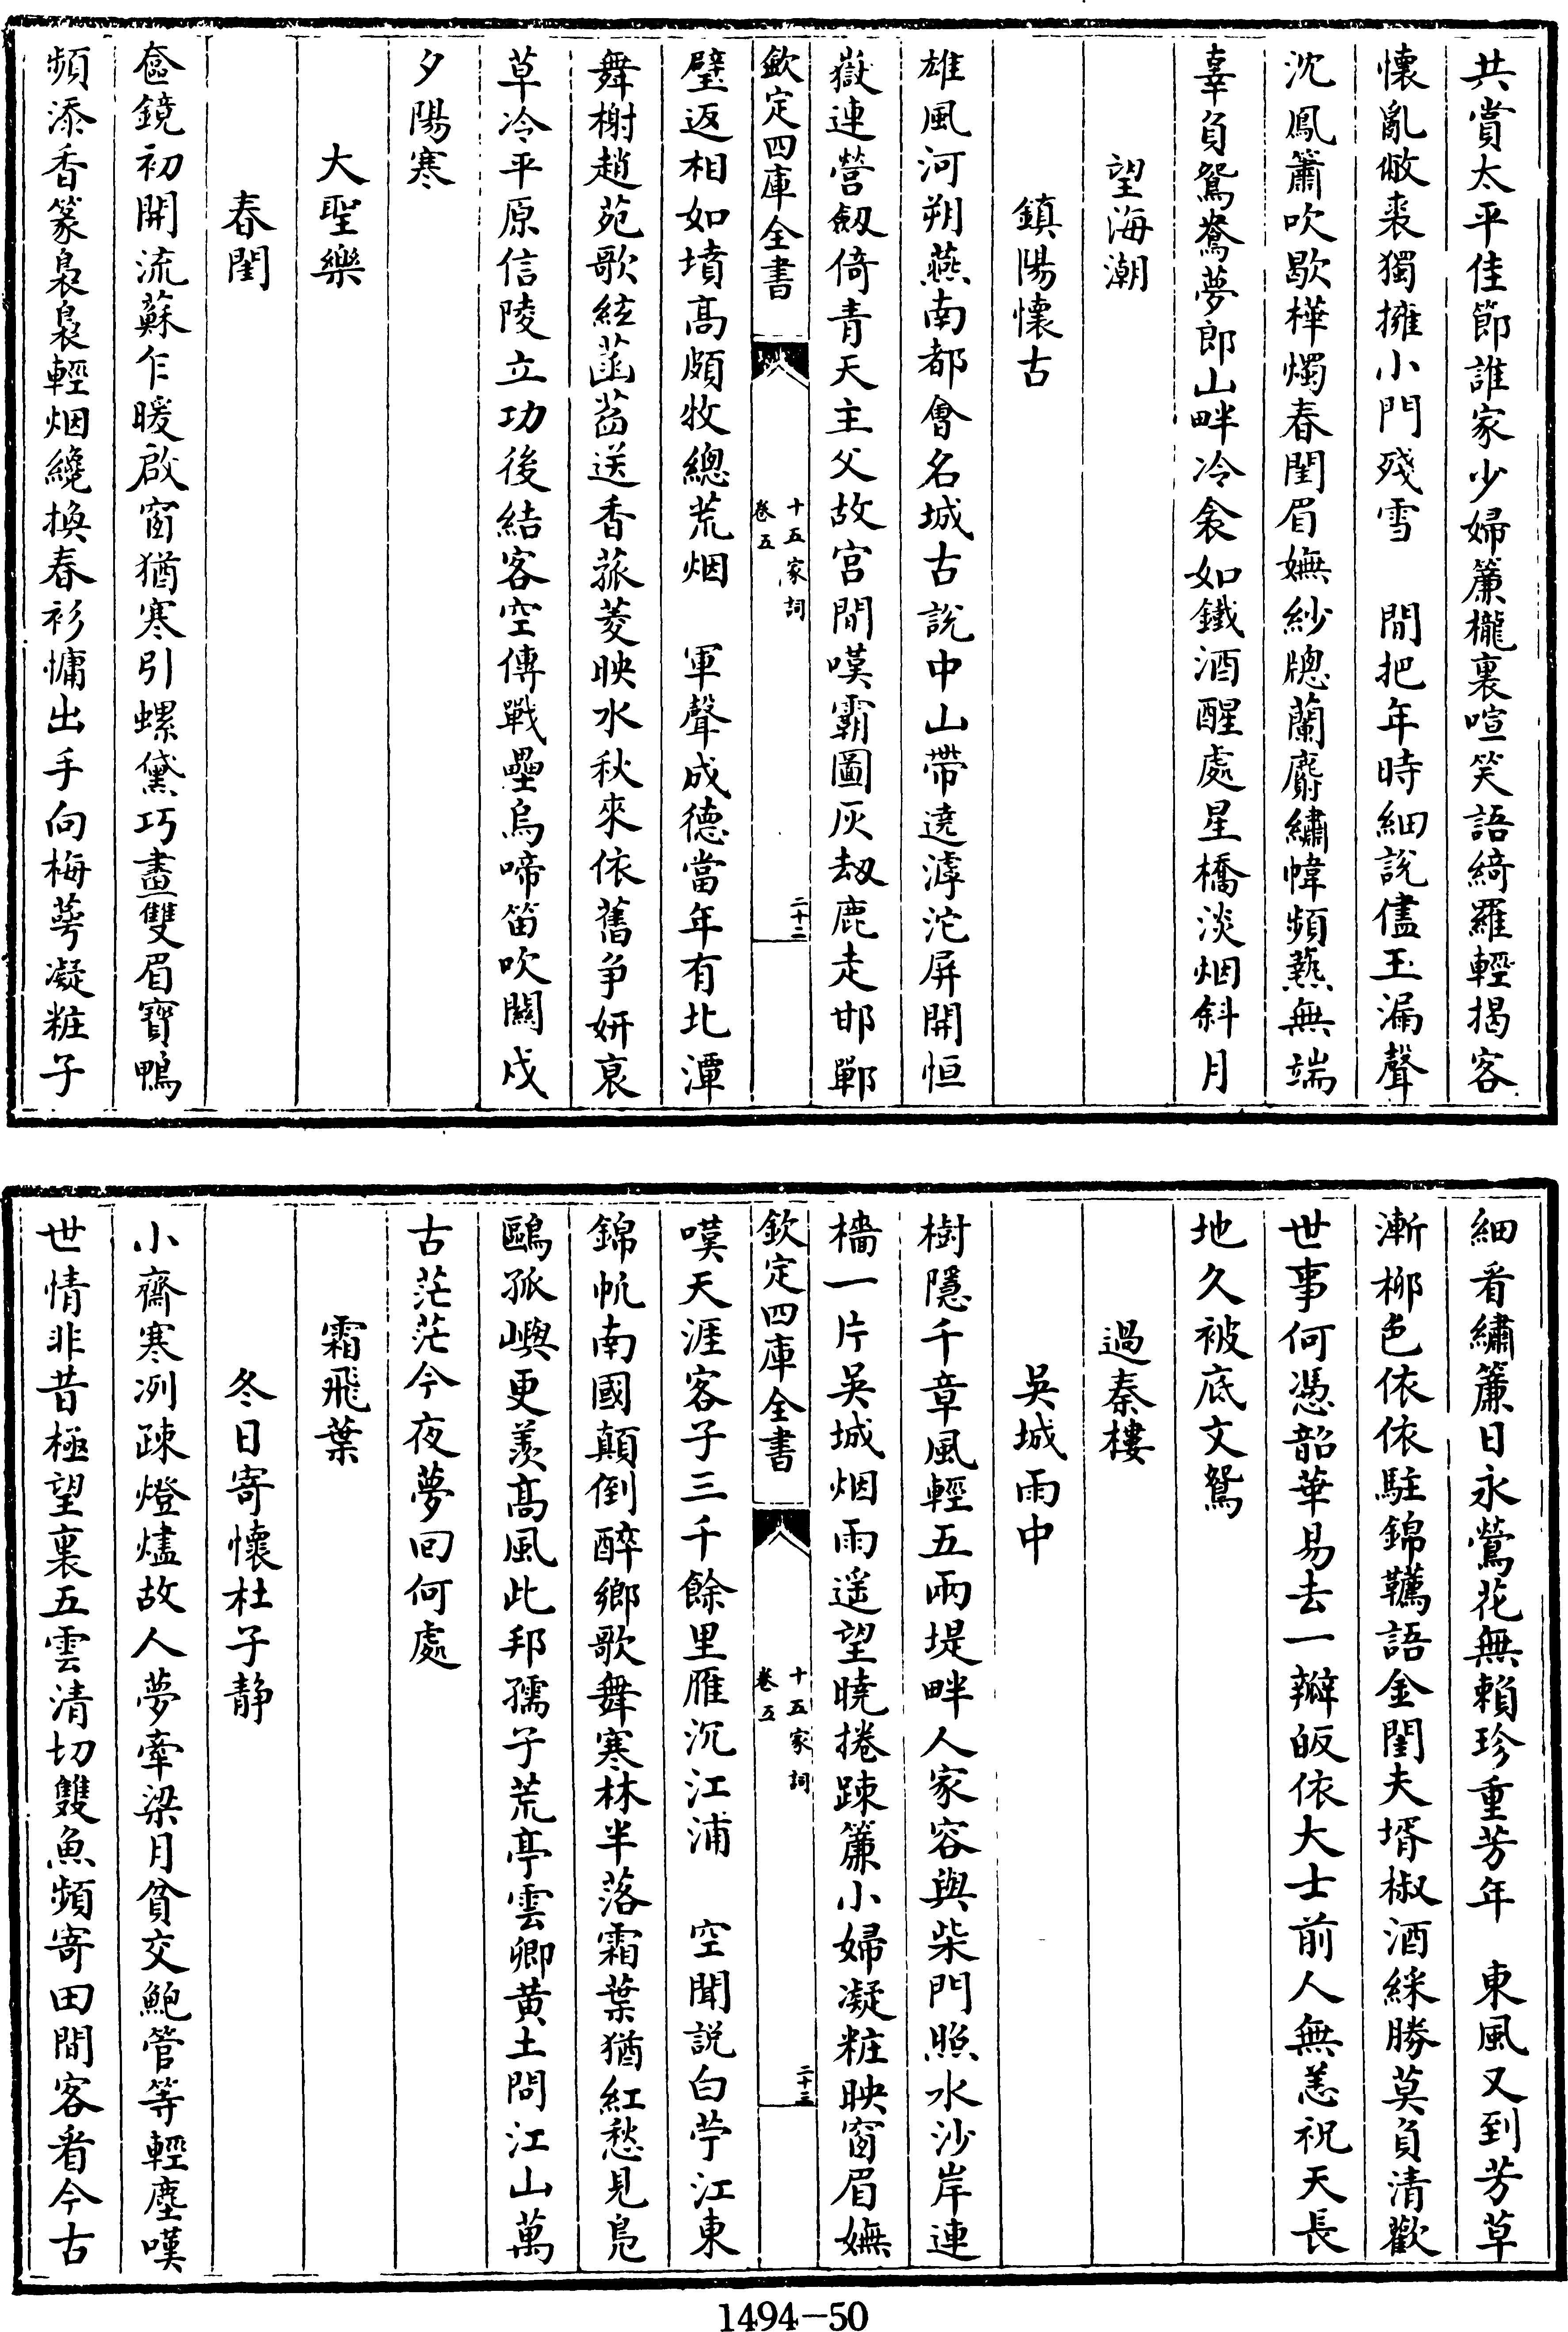 共賞太平佳節誰家少婦簾櫳裏喧笑語綺羅輕揭客
懷亂敝裘獨擁小門殘雪　閒把年時細說儘玉漏聲
沈鳳簫吹歇樺燭春閨眉嫵紗牕蘭麝繡幃頻爇無端
辜負鴛鴦夢郎山畔冷衾如鐵酒醒處星橋淡烟斜月
望海潮
鎮陽懷古
雄風河朔燕南都會名城古說中山帶遶滹沱屏開恒
嶽連營劔倚青天主父故宮間嘆霸圖灰劫鹿走邯鄲
欽定四庫全書
十五家詞
卷五
二十二
璧返相如墳高頗牧總荒烟　軍聲成德當年有北潭
舞榭趙苑歌絃菡萏送香菰菱映水秋來依舊争妍哀
草冷平原信陵立功後結客空傳戰壘烏啼笛吹關戍
夕陽寒
大聖樂
春閨
奩鏡初開流蘇乍暖啟窗猶寒引螺黛巧畫雙眉寶鴨
頻添香篆裊裊輕烟纔換春衫慵出手向梅萼凝粧子
細看繡簾日永鶯花無賴珍重芳年　東風又到芳草
漸栁色依依駐錦韉語金閨夫壻椒酒綵勝莫負清歡
世事何憑韶華易去一瓣皈依大士前人無恙祝天長
地久被底文鴛
過秦樓
吳城雨中
樹隱千章風輕五兩堤畔人家容與柴門照水沙岸連
檣一片吳城烟雨遥望曉捲踈簾小婦凝粧映窗眉嫵
欽定四庫全書
十五家詞
卷五
二十三
嘆天涯客子三千餘里雁沉江浦　空聞説白苧江東
錦帆南國顛倒醉鄉歌舞寒林半落霜葉猶紅愁見鳧
鷗孤嶼更羨高風此邦孺子荒亭雲卿黄土問江山萬
古茫茫今夜夢回何處
霜飛葉
冬日寄懷杜子靜
小齋寒冽踈燈燼故人夢牽梁月貧交鮑管等輕塵嘆
世情非昔極望裏五雲清切雙魚頻寄田間客看今古
1494-50